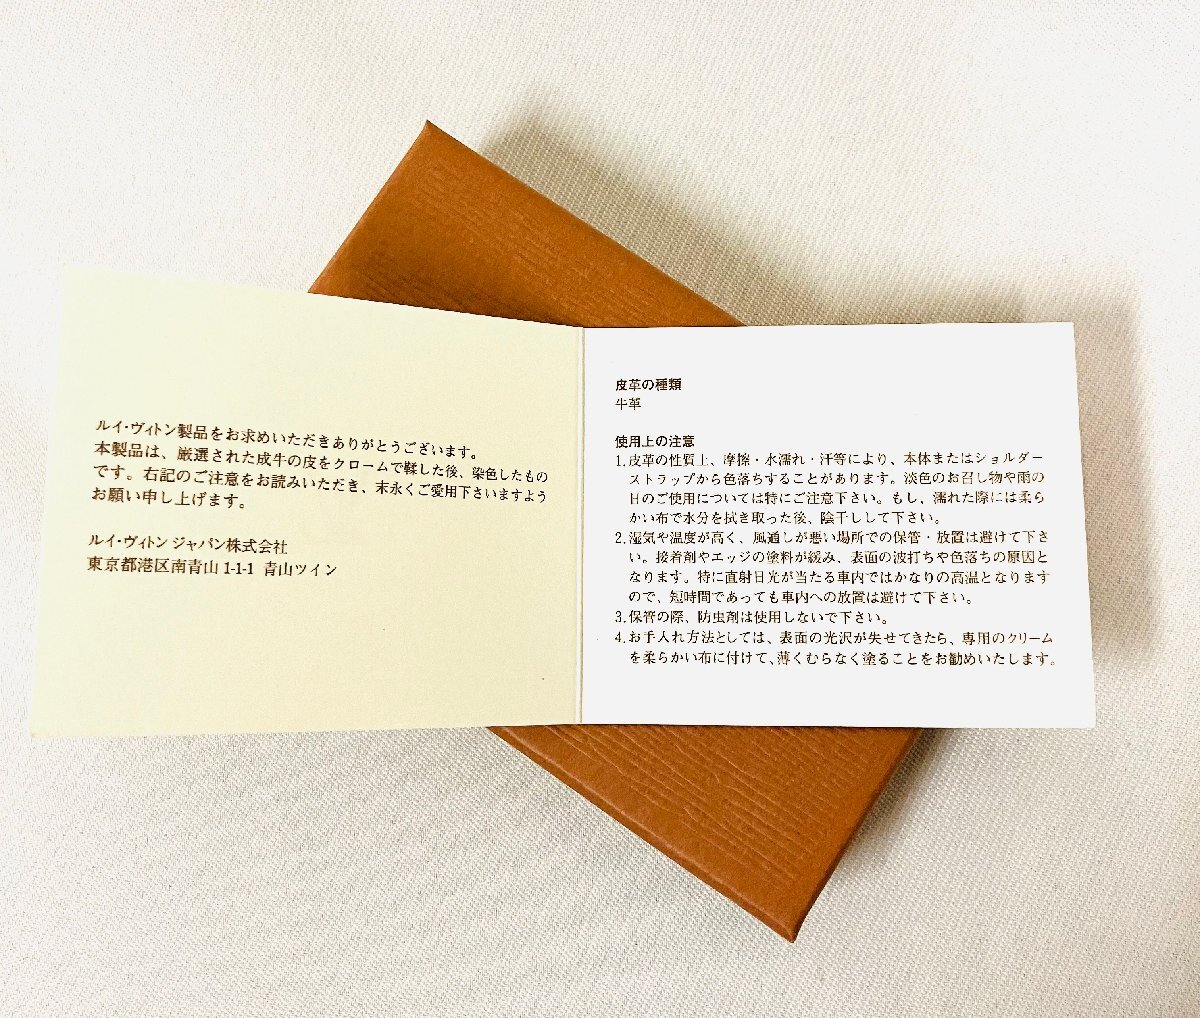 ルイ・ヴィトン製品をお求めいただきありがとうございます。
本製品は、厳選された成牛の皮をクロームで鞣した後、染色したもの
です。右記のご注意をお読みいただき、末永くご愛用下さいますよう
お願い申し上げます。
ルイ・ヴィトン ジャパン株式会社
東京都港区南青山 1-1-1 青山ツイン
皮革の種類
牛革
使用上の注意
1. 皮革の性質上、摩擦・水濡れ・汗等により、本体またはショルダー
ストラップから色落ちすることがあります。淡色のお召し物や雨の
日のご使用については特にご注意下さい。もし、濡れた際には柔ら
かい布で水分を拭き取った後、陰干しして下さい。
2. 湿気や温度が高く、風通しが悪い場所での保管・放置は避けて下さ
い。接着剤やエッジの塗料が緩み、表面の波打ちや色落ちの原因と
なります。特に直射日光が当たる車内ではかなりの高温となります
ので、短時間であっても車内への放置は避けて下さい。
3. 保管の際、防虫剤は使用しないで下さい。
4. お手入れ方法としては、表面の光沢が失せてきたら、専用のクリーム
を柔らかい布に付けて、薄くむらなく塗ることをお勧めいたします。